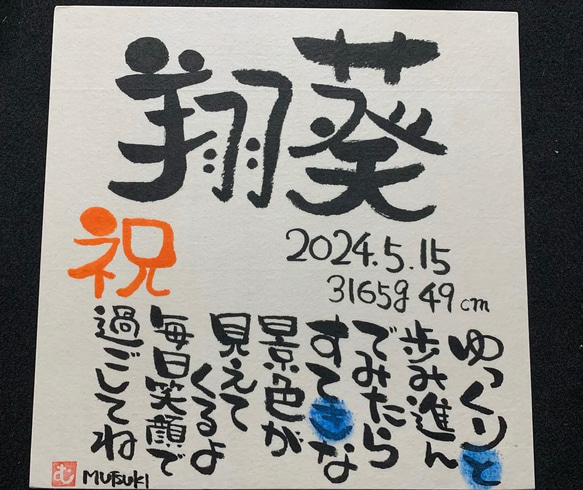 翔葵
祝
2024.5.15
3165g 49cm
ゆっくりと
歩み進ん
でみたら
すてきな
景色が
見えて
くるよ
毎日笑顔で
過ごしてね
む MUTSUKI